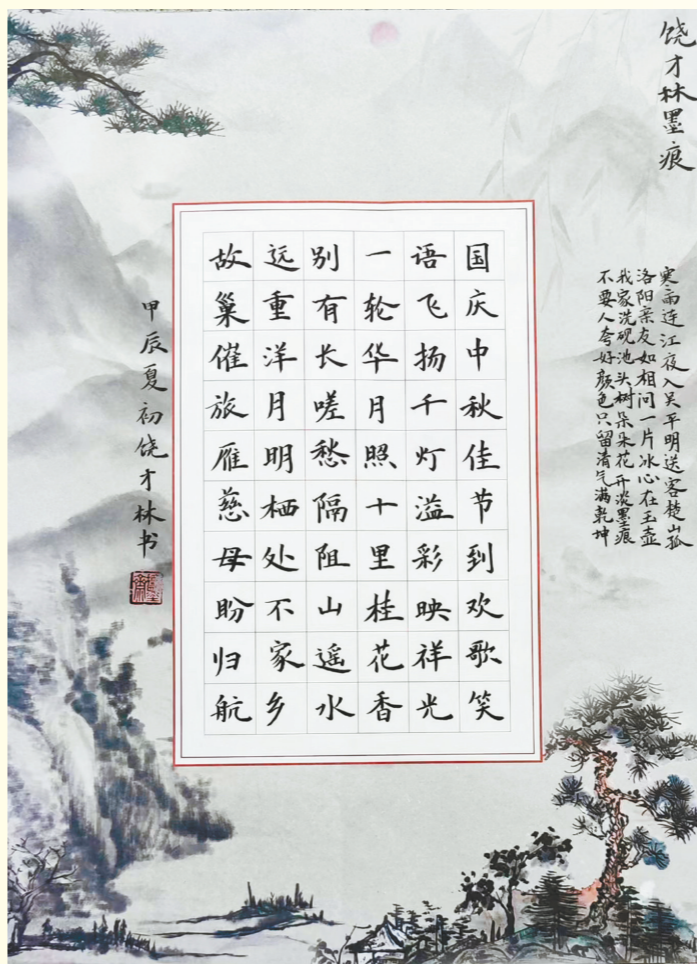 饶才林墨痕
寒雨连江夜入吴平明送客楚山孤
洛阳亲友如相问一片冰心在玉壶
我家洗砚池头树朵朵花开淡墨痕
不要人夸好颜色只留清气满乾坤
国庆中秋佳节到欢歌笑
语飞扬千灯溢彩映祥光
一轮华月照十里桂花香
别有长嗟愁隔阻山遥水
远重洋月明栖处不家乡
故巢催旅雁慈母盼归航
甲辰夏初饶才林书